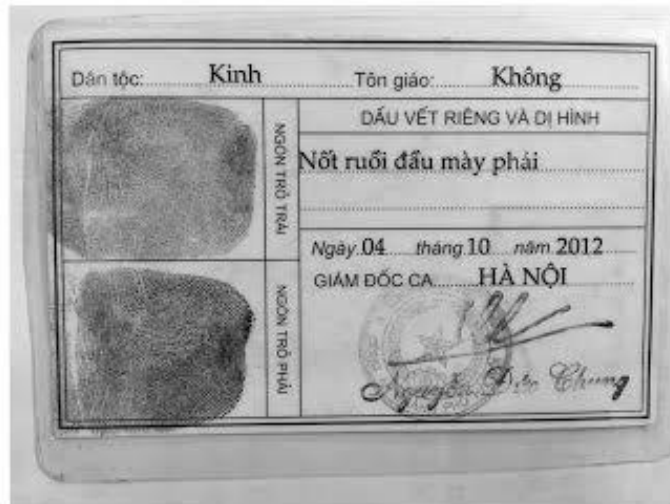 Dân tộc: Kinh Tôn giáo: Không
NGÓN TRỎ TRÁI
DẤU VẾT RIÊNG VÀ DỊ HÌNH
Nốt ruồi đầu mày phải
Ngày 04 tháng 10 năm 2012
GIÁM ĐỐC CA HÀ NỘI
NGÓN TRỎ PHẢI
Nguyễn Đức Chung